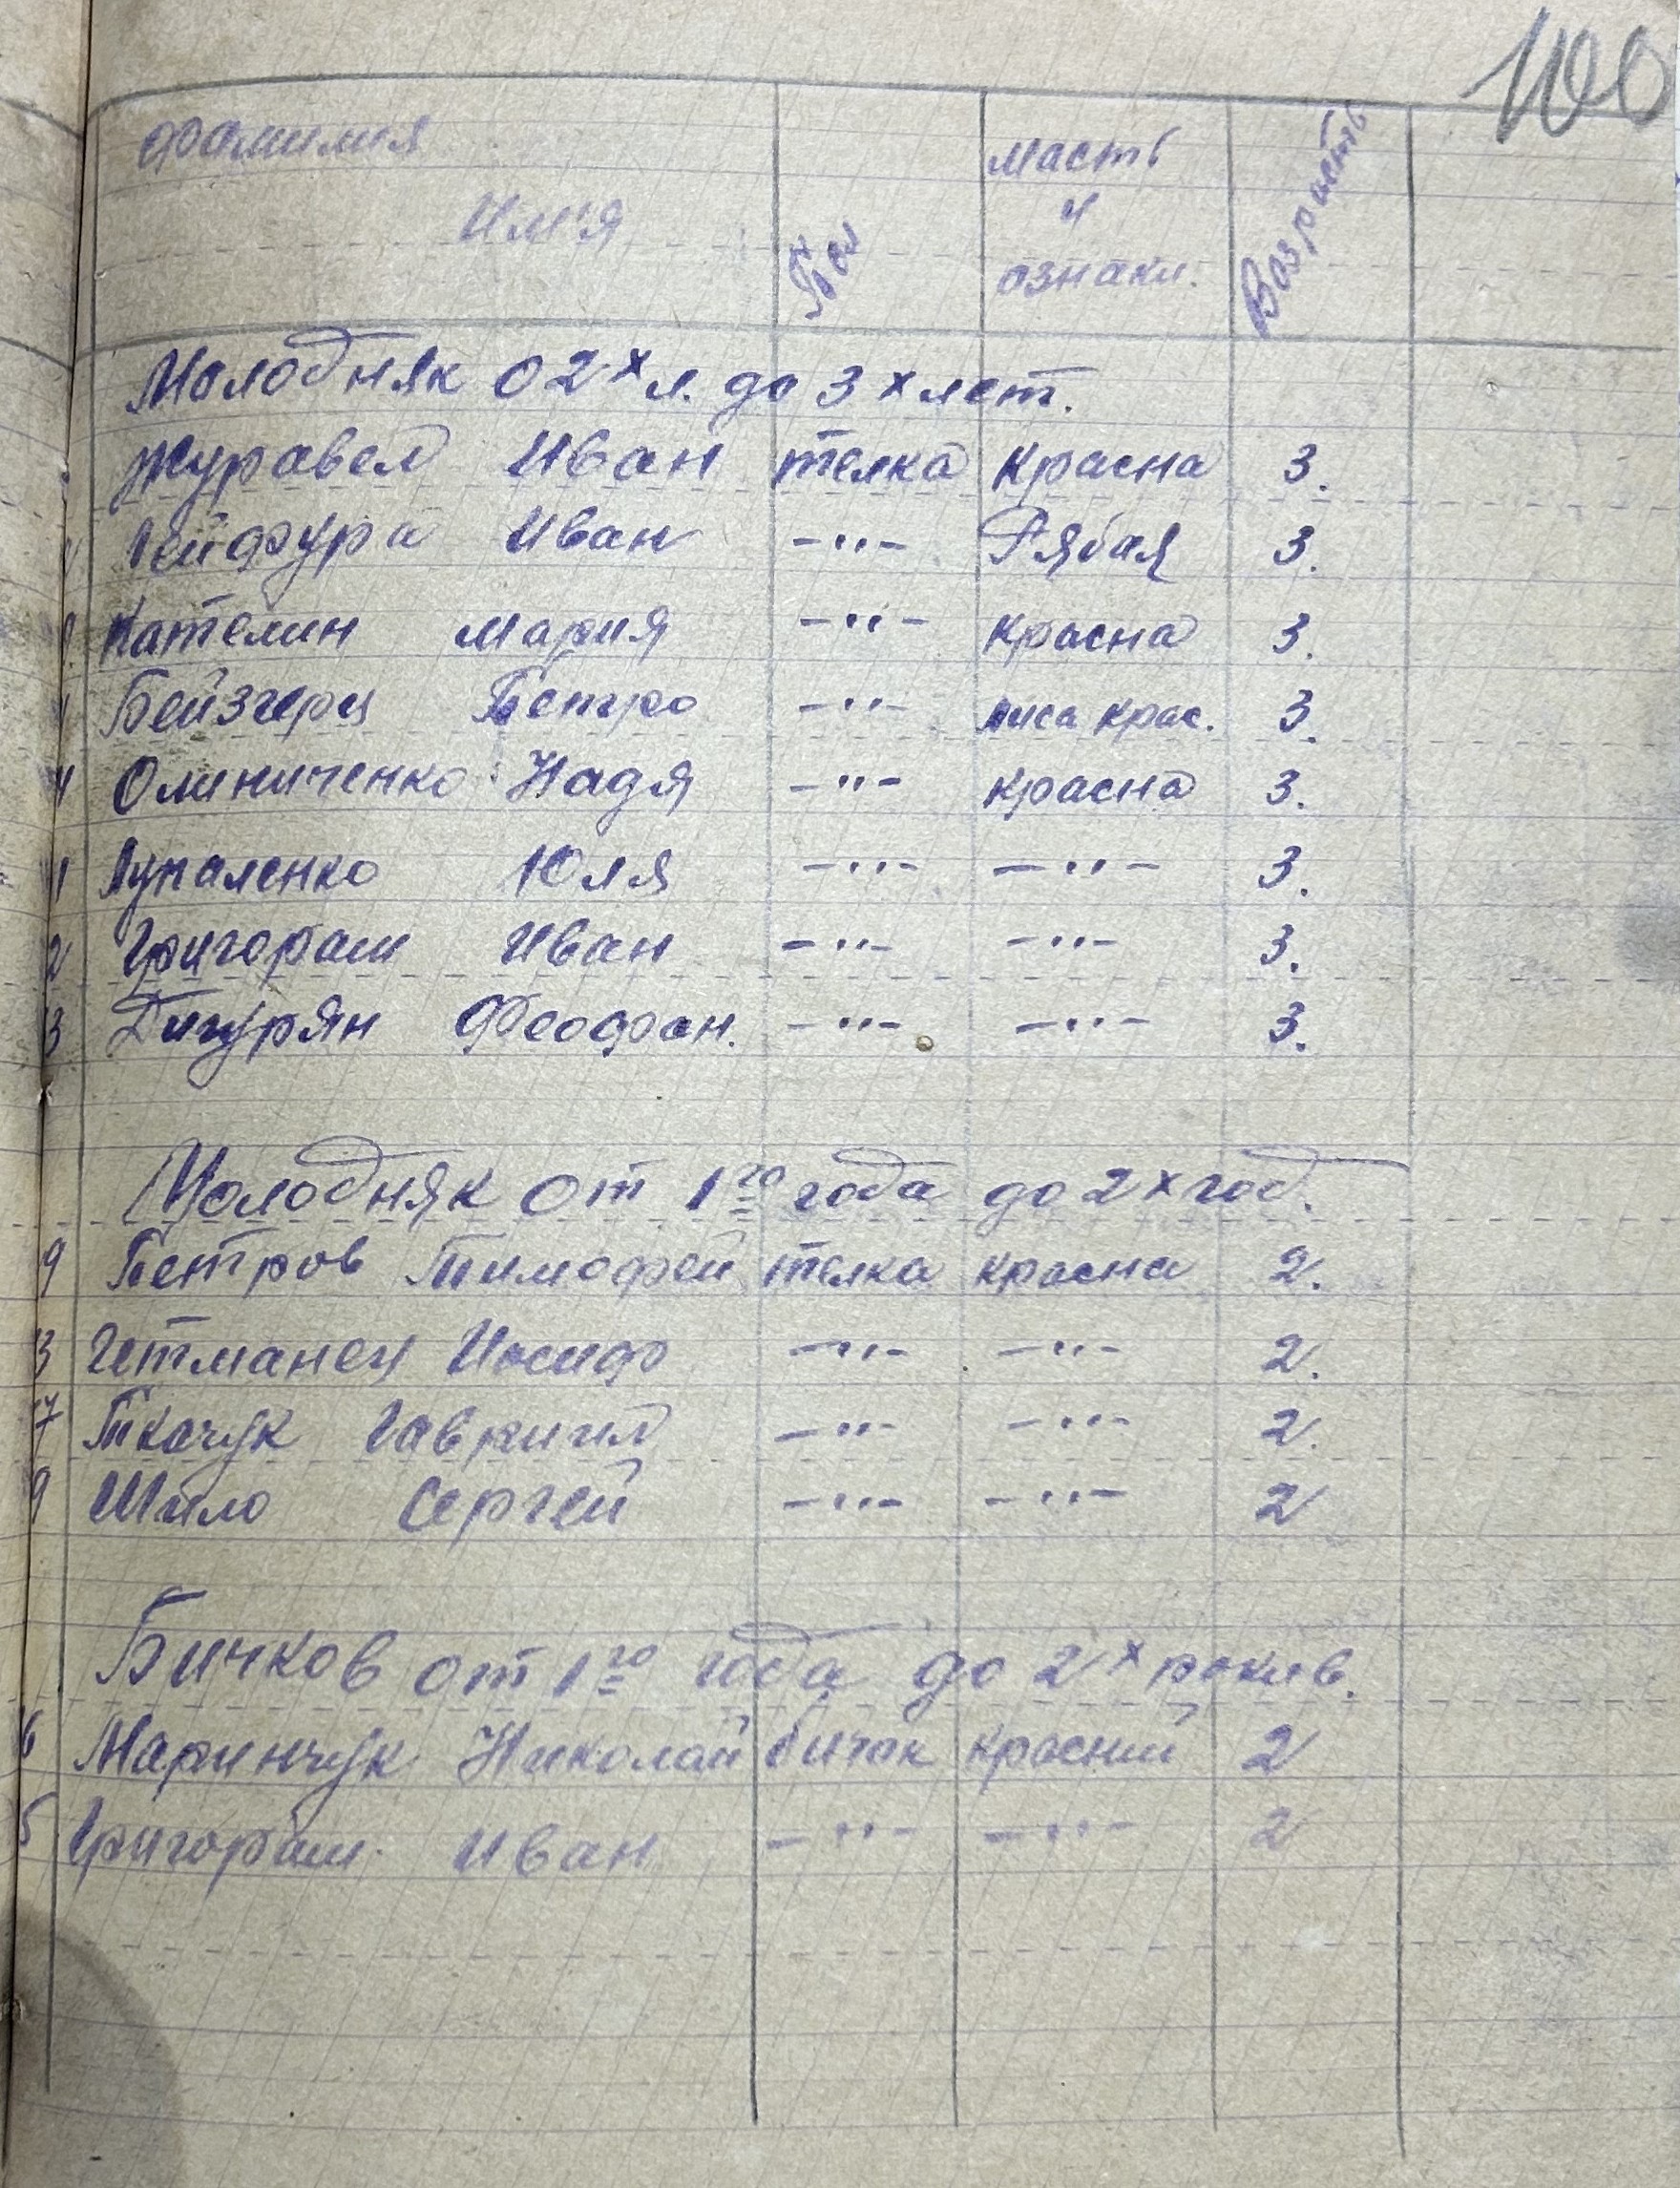 100
Фамилия Им'я Пол масть и ознаки. Возрасть
Молодняк о 2х л. до 3х лет.
Журавел Иван телка Красна 3.
Гейфура Иван -"- Рябая 3.
Кателин Мария -"- красна 3.
Бейзгерц Петро -"- лиса крас. 3.
4 Олиниченко Надя -"- красна 3.
1 Лупаленко Юля -"- -"- 3.
2 Григораш Иван -"- -"- 3.
3 Дигурян Феофан. -"- -"- 3.
Молодняк от 1го года до 2х год.
9 Петров Тимофей телка красна 2.
3 Гетманец Иосиф -"- -"- 2.
17 Ткачук Гавриил -"- -"- 2.
9 Шило Сергей -"- -"- 2
Бичков от 1го года до 2х рокив.
6 Маринчук Николай бичок красний 2
5 Григораш Иван -"- -"- 2